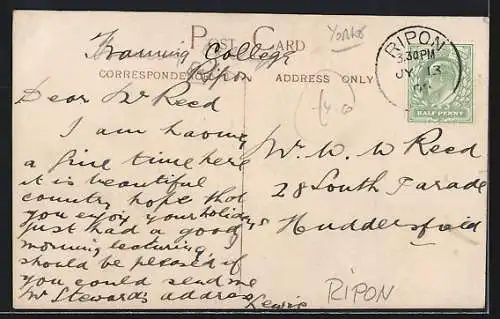 POST CARD
Yorks
Training College
Ripon
CORRESPONDENCE
ADDRESS ONLY
RIPON
3.30PM
JY 13
HALF PENNY
Dear Mr Reed
I am having
a fine time here
it is beautiful
country hope that
you enjoy your holidays
just had a good
morning lecturing
should be pleased if
you could send me
Mr Steward's address
Lewis
Mr. W. W Reed
28 South Parade
Huddersfield
RIPON